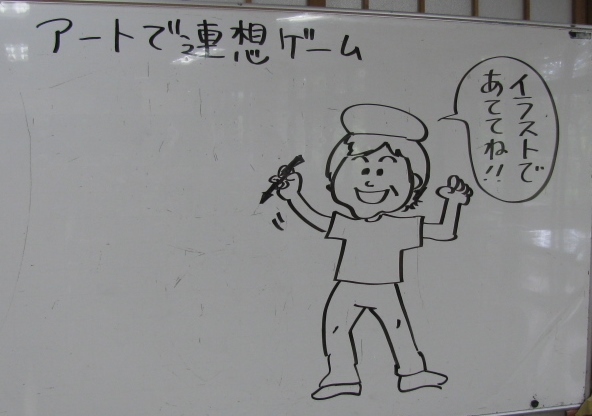 アートで連想ゲーム
イラストで
あててね!!